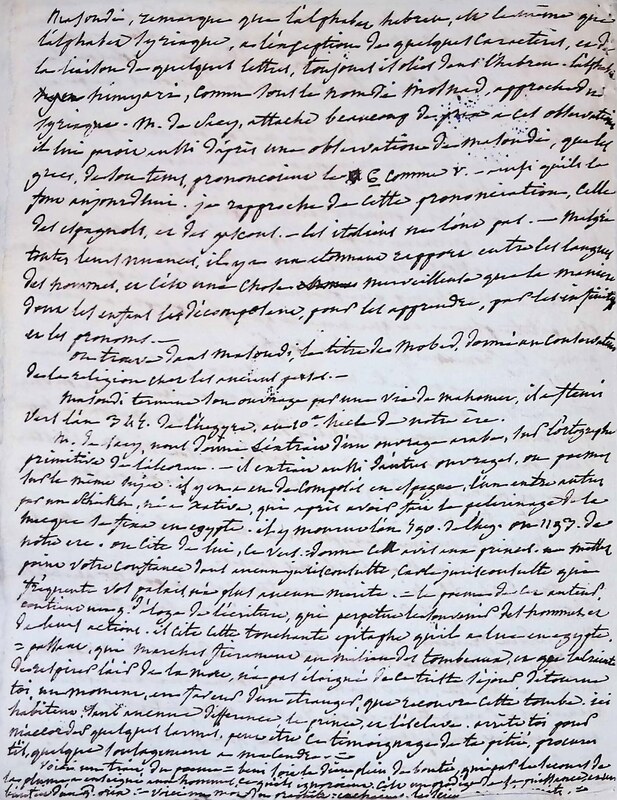 Masoudi, remarque que l'alphabet hebreu, est le même que
l'alphabet syriaque, a l'exception de quelques caracteres, et de
la liaison de quelques lettres, toujours isolées dans l'hebreu - l'alphabet
himyari, connu sous le nom de mosnad, approche du
syriaque. M. de Sacy, attache beaucoup de prix a cet observation
il lui paroit aussi d'après une observation de masoudi, que les
grecs, de son tems, prononcoient le 6 comme v. - ainsi qu'ils le
font aujourd'hui. je rapproche de cette prononciation, celle
des espagnols, et des gascons. - les italiens ne l'ont pas. - Malgré
toutes leurs nuances, il y a un etonnant rapport entre les langues
des hommes, et c'est une chose merveilleuse que la maniere
dont les enfans les décomposent, pour les apprendre, par les infinitifs
et les pronoms. -
on trouve dans Masoudi, le titre de Mobed, donné au conservateur
de la religion chez les anciens perses. -
Masoudi termine son ouvrage par une vie de mahomet, il a fleuri
vers l'an 345. de l'hegyre, au 10e siecle de notre ère.
M. de Sacy, nous donne l'extrait d'un ouvrage arabe, sur l'ortographe
primitive de l'alcoran. - il extrait aussi d'autres ouvrages, ou poemes
sur le même sujet. il y en a eu de composés en espagne, l'un entre autres
par un né a Xativa, qui après avoir fait le pelerinage de la
mecque se fixa en egypte. il y mourut l'an 590. de l'heg. ou 1193. de
notre ere. on cite de lui, ce vers. donne cet avis aux princes. ne mettez
point votre confiance dans aucun jurisconsulte, car le jurisconsulte qui
fréquente vos palais n'a plus aucun merite. - le poeme de cet auteur,
contient un éloge de l'ecriture, qui perpetue le souvenir des hommes et
de leurs actions. il cite cette touchante epitaphe qu'il a lue en egypte.
= passant, qui marches fierement au milieu des tombeaux, et qui
des de la mort, n'es pas eloigné de ce triste sejour detourne
toi, un moment, en faveur d'un etranger, que recouvre cette tombe. ici
habitent sans aucune difference, le prince, et l'esclave. arrête toi pour
m'accorder quelques larmes, peut être ce temoignage de ta pitié, procurera
t'il, quelque soulagement a ma cendre. =
voici un trait du poeme = ton seigneur est plein de bonté, qui par le secours de
la plume a enseigné aux hommes, ce qu'ils ignoroient. c'est un de sa puissance,